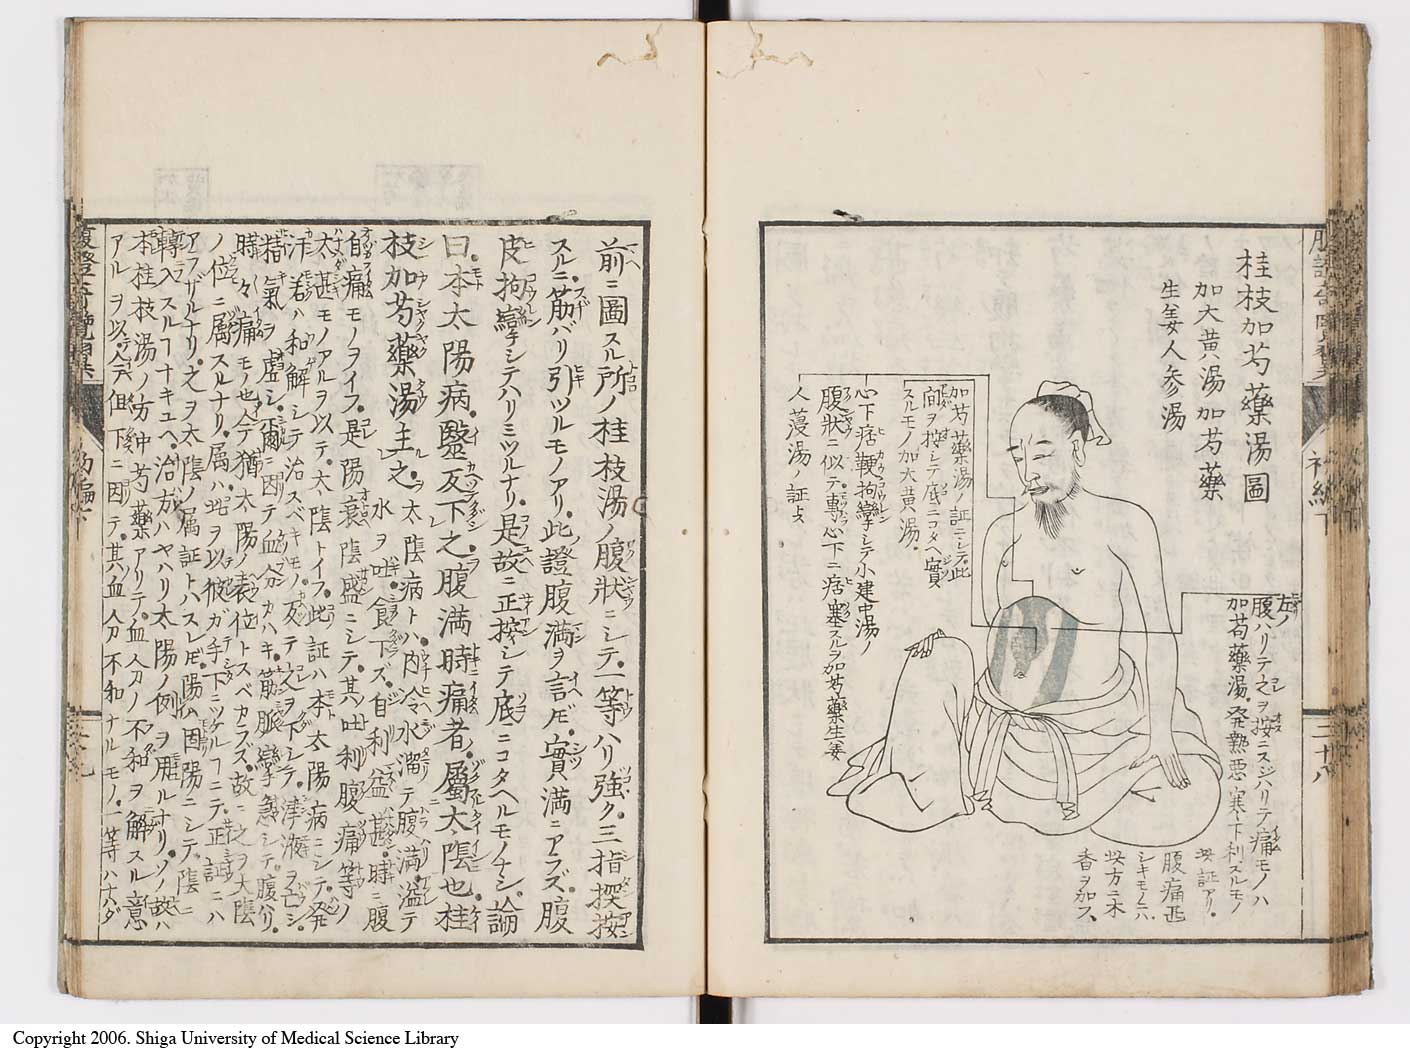 桂枝加芍藥湯圖
加大黄湯加芍藥
生姜人參湯
左ノ
腹ハリテ之ヲ按ニスジバリテ痛モノハ
加芍藥湯発熱悪寒下利スルモノ
此証アリ
腹痛甚
シキモノニハ
此方ニ木
香ヲ加フ
加芍藥湯ノ証ニシテ此
向ヲ按シテ底ニコタヘ實
スルモノ加大黄湯
心下痞鞕拘攣シテ小建中湯ノ
腹狀ニ似テ專心下ニ痞塞スルヲ加芍藥生姜
人蓡湯ノ証トス
三十八
前ニ圖スル所ノ桂枝湯ノ腹狀ニシテ一等ハリ強ク三指探按
スルニ筋バリ引ツルモノアリ此證腹満ヲ言ドモ實満ニアラズ腹
皮拘攣シテハリミツルナリ是故ニ正按シテ底ニコタヘルモノナシ論
曰本太陽病醫反下之腹満時痛者屬太陰也桂
枝加芍藥湯主之 太陰病トハ内冷水溜テ腹満溢テ
水ヲ吐食下ズ自利益甚時ニ腹
自痛モノヲイフ是陽衰陰盛ニシテ其吐利腹痛等ノ
太甚モノアルヲ以テ太陰トイフ此証ハ本太陽病ニシテ発
汗若ハ和解シテ治スベキモノ反テ之ヲ下シテ津液ヲ亡シ
精氣ヲ虚シ爾ニ因テ血分カハキ筋脈攣急シテ腹ハリ
時々痛モノ也今猶太陽ノ表位トスベカラズ故ニ之ヲ太陰
ノ位ニ属スルナリ属ハ此ヲ以彼ガ手下ニツケルフニテ正証ニハ
アラザルナリ之ヲ太陰ノ属証トハスレドモ陽ハ因陽ニシテ陰ニ
轉入スルフナキユヘ治方ハヤハリ太陽ノ例ヲ用ルナリソノ故ハ
本桂枝湯ノ方中芍藥アリテ血分ノ不和ヲ解スル意
アルヲ以今但下ニ因テ其血分不和ナルモノ一等ハナハダ